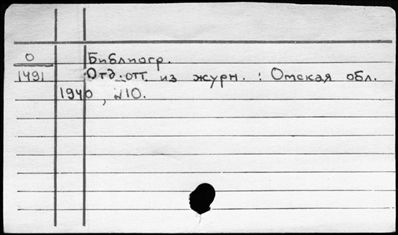 О Библиогр.
1491 Отд. отт. из журн. : Омская обл.
1940, №10.